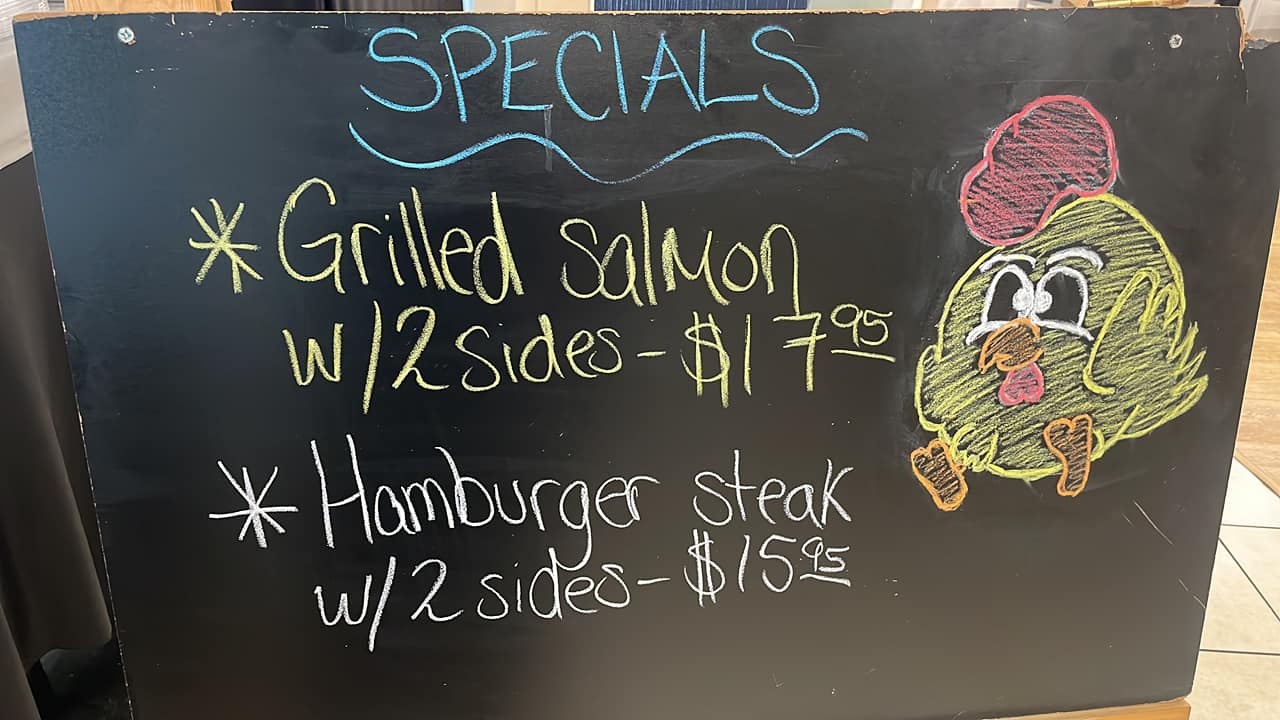 SPECIALS
* Grilled Salmon
w/2 sides - $17 95
* Hamburger steak
w/2 sides - $15 95